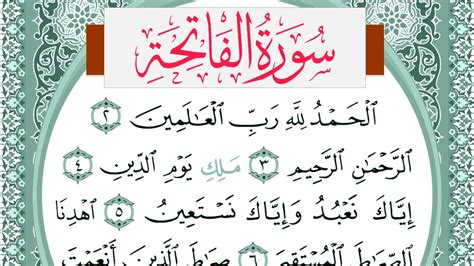 سُورَةُ الْفَاتِحَةِ
الْحَمْدُ لِلَّهِ رَبِّ الْعَالَمِينَ ٢
الرَّحْمَٰنِ الرَّحِيمِ ٣ مَلِكِ يَوْمِ الدِّينِ ٤
إِيَّاكَ نَعْبُدُ وَإِيَّاكَ نَسْتَعِينُ ٥ اهْدِنَا
الصِّرَاطَ الْمُسْتَقِيمَ ٦ صِرَاطَ الَّذِينَ أَنْعَمْتَ